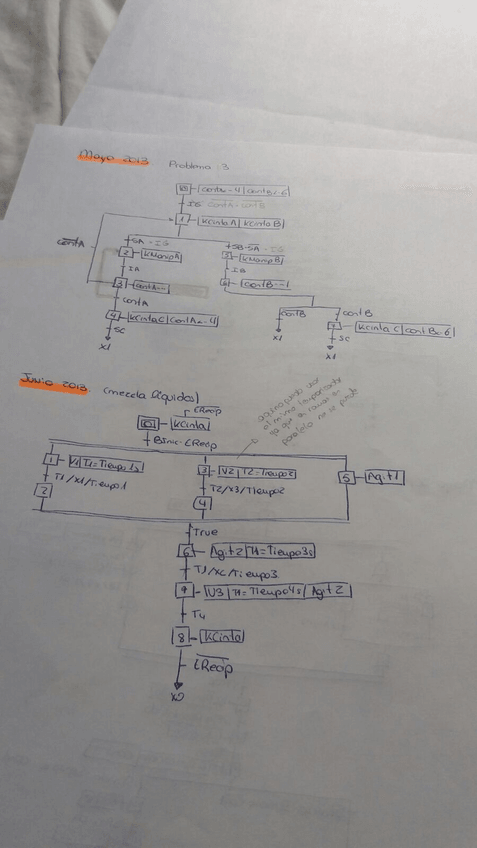 Mayo 2013 Problema: 3
0 contA=4 contB=6
IG contA · contB
1 KCinta A KCinta B
contA
SA · IG SB·SA · IG
2 KManip A 5 KManip B
IA IB
3 contA-- 6 contB--1
contA contB contB
4 KCinta C contA=4 7 KCinta C contB=6
SC X1 SC
X1 X1
Junio 2013 (mezcla líquidos)
CRecip
0 KCinta
Binic · CRecip
1 V1 T1=Tiempo1s 3 V2 T2=Tiempo2 5 Agit1
T1/X1/Tiempo1 T2/X3/Tiempo2
2 4
True
6 Agit2 Tiempo3s
Tiempo3
7 V3 Tiempo4s Agit2
T4
8 KCinta
CRecip
X0